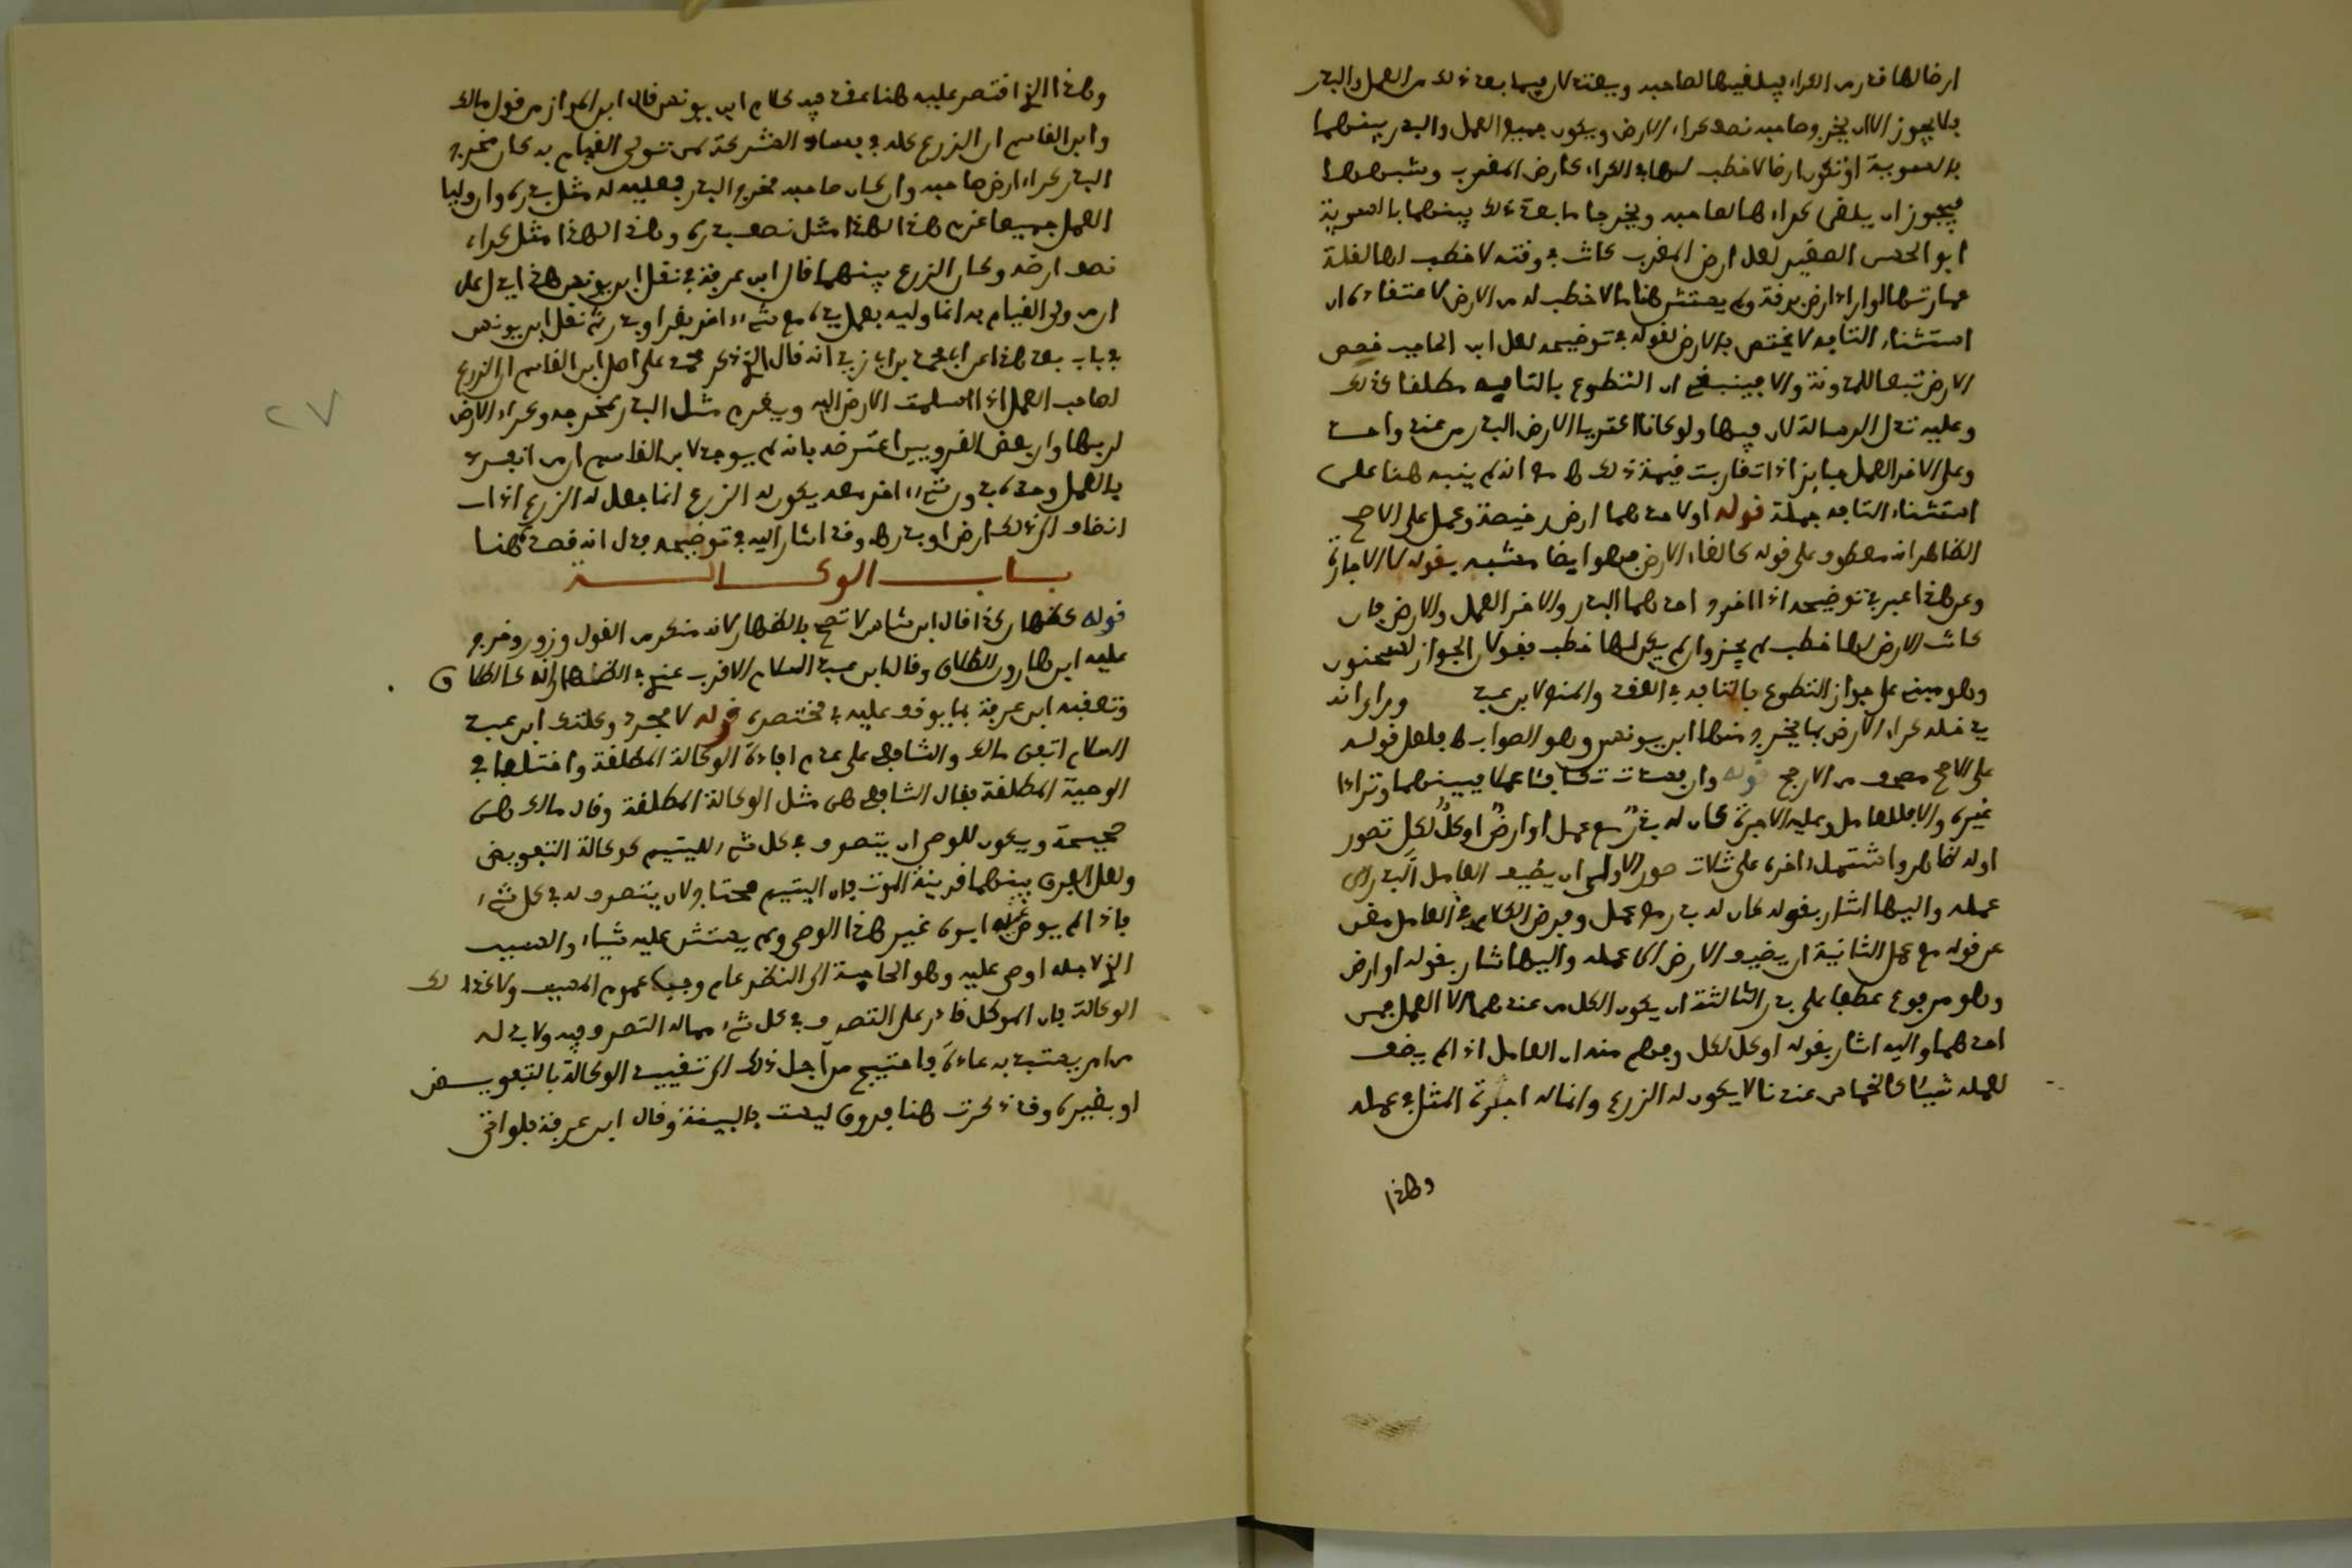 ارضا لها قدر من الكراء فيلغيها لصاحبه ويعتدلان فيما بعد ذلك من العمل والبذر
فلا يجوز الا ان يخرج صاحبه نصف كراء الارض ويكون جميع العمل والبذر بينهما
بالسوية او تكون ارضا لا خطب لها في الكراء كارض المغرب وشبهها
فيجوز ان يلغى كراءها لصاحبه ويخرجا ما بعد ذلك بينهما بالسوية
ابو الحسن الصغير لعل ارض المغرب كانت في وقته لا خطب لها لقلة
عمارتها او اراد ارض برقة ولم يستثن هنا ما لا خطب له من الارض لاعتقاده ان
استثناء التابع لا يختص بالارض لقوله في توضيحه لعل ابن الحاجب خصص
الارض تبعا للمدونة والا فينبغي ان التطوع بالتافه مطلقا كذلك
وعليه تدل الرسالة لان فيها ولو كانا اكتريا الارض والبذر من عند واحد
وعلى الاخر العمل جاز اذا تقاربت قيمة ذلك مع انه لم ينبه هنا على
استثناء التابع جملة قوله او لاحدهما ارض رخيصة وعمل على الاصح
الظاهر انه معطوف على قوله كالغاء الارض فهو ايضا مشبه بقوله لا الاجارة
وعن هذا عبر في توضيحه اذا اخرج احدهما البذر والاخر العمل والارض فان
كانت الارض لها خطب لم يجز وان لم يكن لها خطب فقولان الجواز لسحنون
وهو مبني على جواز التطوع بالتافه في العقد والمنع لابن عبد
يدخله كراء الارض بما يخرج منها ابن يونس وهو الصواب فلعل قوله
على الاصح مصحف من الارجح قوله وان فسدت وتكافئا عملا فبينهما وترادا
غيره والا فللعامل وعليه الاجرة كان له بذر مع عمل او ارض او كل لكل تصور
اوله ظاهر واشتمل اخره على ثلاث صور الاولى ان يضيف العامل البذر الى
عمله واليها اشار بقوله كان له بذر مع عمل وفرض الكلام في العامل مغن
عن قوله مع عمل الثانية ان يضيف الارض الى عمله واليها اشار بقوله او ارض
وهو مرفوع عطفا على بذر الثالثة ان يكون الكل من عندهما الا العمل فمن
احدهما واليه اشار بقوله او كل لكل وفهم منه ان العامل اذا لم يضف
لعمله شيئا كالخماس عندنا لا يكون له الزرع وانما له اجرة المثل في عمله
وهذا
وهذا الذي اقتصر عليه هنا عقد فيه كلام ابن يونس قال ابن المواز من قول مالك
وابن القاسم ان الزرع كله في فساد الشركة لمن تولى القيام به كان مخرج
البذر كراء ارض صاحبه وان كان صاحبه مخرج البذر فعليه له مثل بذره وان وليا
العمل جميعا غرم هذا لهذا مثل نصف بذره وهذا لهذا مثل كراء
نصف ارضه وكان الزرع بينهما قال ابن عرفة في نقل ابن يونس هذا يدل على
ان من ولي القيام به انما وليه بعمل يده مع شيء اخر بقر او بذر ثم نقل ابن يونس
في باب بعد هذا عن ابي محمد بن ابي زيد انه قال الذي ذكر محمد على اصل ابن القاسم ان الزرع
لصاحب العمل اذا اسلمت الارض اليه ويغرم مثل البذر لمخرجه وكراء الارض
لربها وان بعض القرويين اعترضه بانه لم يوجد لابن القاسم ان من انفرد
بالعمل وحده بدون شيء اخر معه يكون له الزرع انما جعل له الزرع اذا
انضاف الى ذلك ارض او بذر وقد اشار اليه في توضيحه فدل انه قصده هنا
بـــاب الوكـــالـــة
قوله كظهار كذا قال ابن شاس لا تصح بالظهار لانه منكر من القول وزور وخرج
عليه ابن هارون الطلاق وقال ابن عبد السلام الاقرب عندي في الظهار انه كالطلاق
وتعقبه ابن عرفة بما يوقف عليه في مختصره قوله لا مجرد وكلتك ابن عبد
السلام اتفق مالك والشافعي على عدم افادة الوكالة المطلقة واختلفا في
الوصية المطلقة فقال الشافعي هي مثل الوكالة المطلقة وقال مالك هي
صحيحة ويكون للوصي ان يتصرف في كل شيء لليتيم كوكالة التفويض
ولعل الفرق بينهما قرينة الموت فان اليتيم محتاج لان يتصرف له في كل شيء
فاذا لم يوص عليه ابوه غير هذا الوصي ولم يستثن عليه شيئا والسبب
الذي لاجله اوصى عليه وهو الحاجة الى النظر عام وجب عموم المسبب ولا كذلك
الوكالة فان الموكل قادر على التصرف في كل شيء مما له التصرف فيه ولا بد له
من امر يستبد به عادة فاحتيج من اجل ذلك الى تقييد الوكالة بالتفويض
او بغيره وقد ذكرت هنا فروق ليست بالبينة وقال ابن عرفة فلو اتى
٢٧